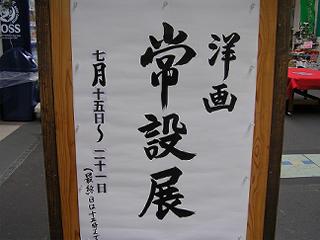 洋画
常設展
七月十五日〜二十一日
(最終日は十五時まで
OSS